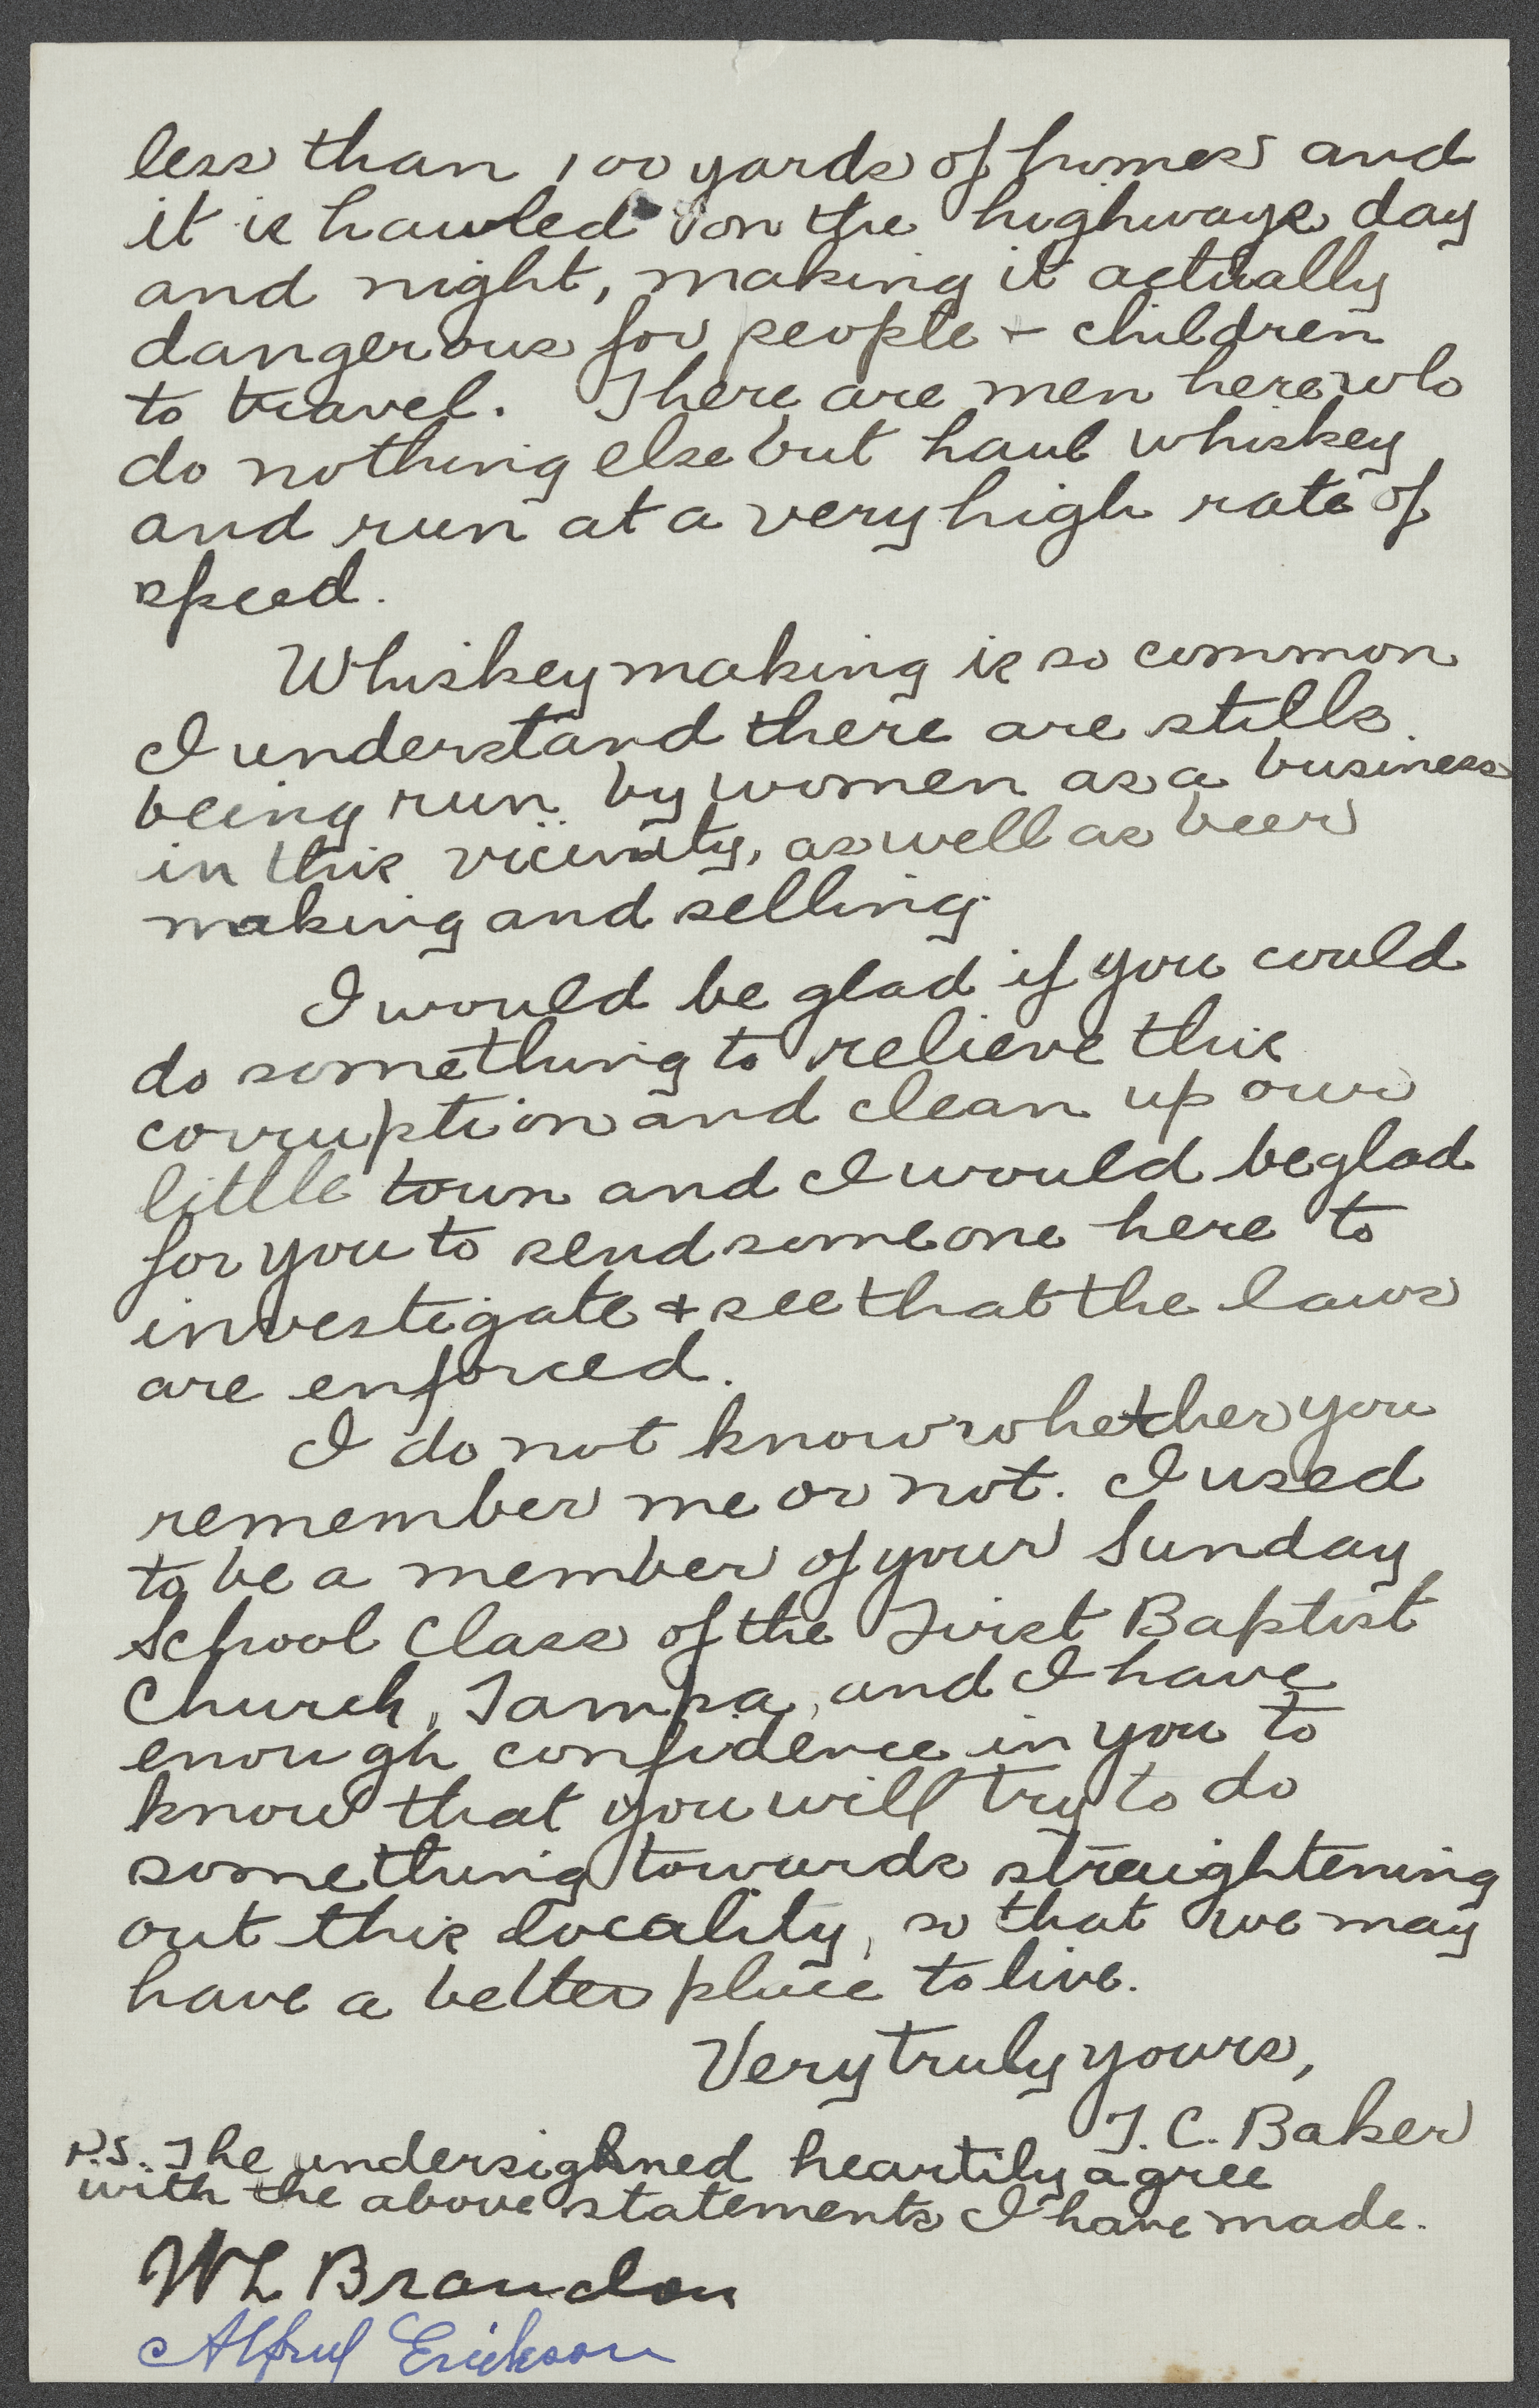 less than 100 yards of homes and
it is hauled on the highways day
and night, making it actually
dangerous for people + children
to travel. There are men here who
do nothing else but haul whiskey
and run at a very high rate of
speed.
Whiskey making is so common
I understand there are stills
being run by women as a business
in this vicinity, as well as beer
making and selling.
I would be glad if you could
do something to relieve this
corruption and clean up our
little town and I would be glad
for you to send someone here to
investigate + see that the laws
are enforced.
I do not know whether you
remember me or not. I used
to be a member of your Sunday
School Class of the First Baptist
Church, Tampa, and I have
enough confidence in you to
know that you will try to do
something towards straightening
out this locality, so that we may
have a better place to live.
Very truly yours,
T. C. Baker
P.S. The undersighned heartily agree
with the above statements I have made.
WL Brandon
Alfred Erickson